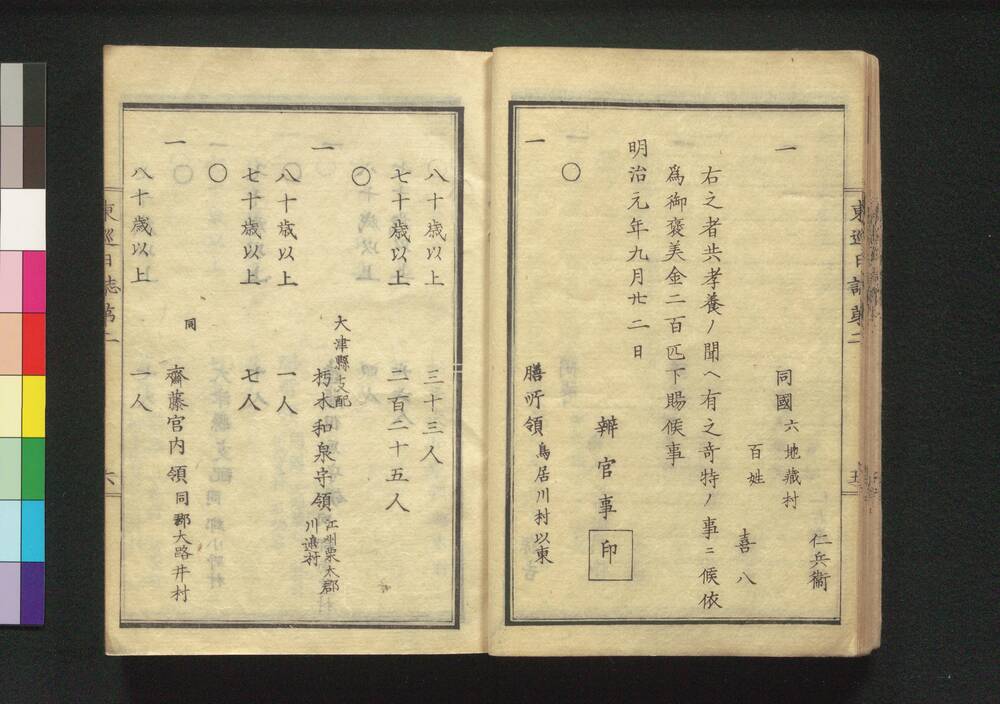 仁兵衞
一 同國六地藏村
百姓
喜八
右之者共孝養ノ聞ヘ有之奇特ノ事ニ候依
爲御褒美金二百匹下賜候事
明治元年九月廿二日
辨官事 印
〇
一 膳所領鳥居川村以東
八十歳以上 三十三人
七十歳以上 二百二十五人
〇 大津縣支配
一 朽木和泉守領江州栗太郡川邊村
八十歳以上 一人
七十歳以上 七人
〇 同
一 齋藤宮内領同郡大路井村
八十歳以上 一人
東巡日誌第二 五
東巡日誌第二 六